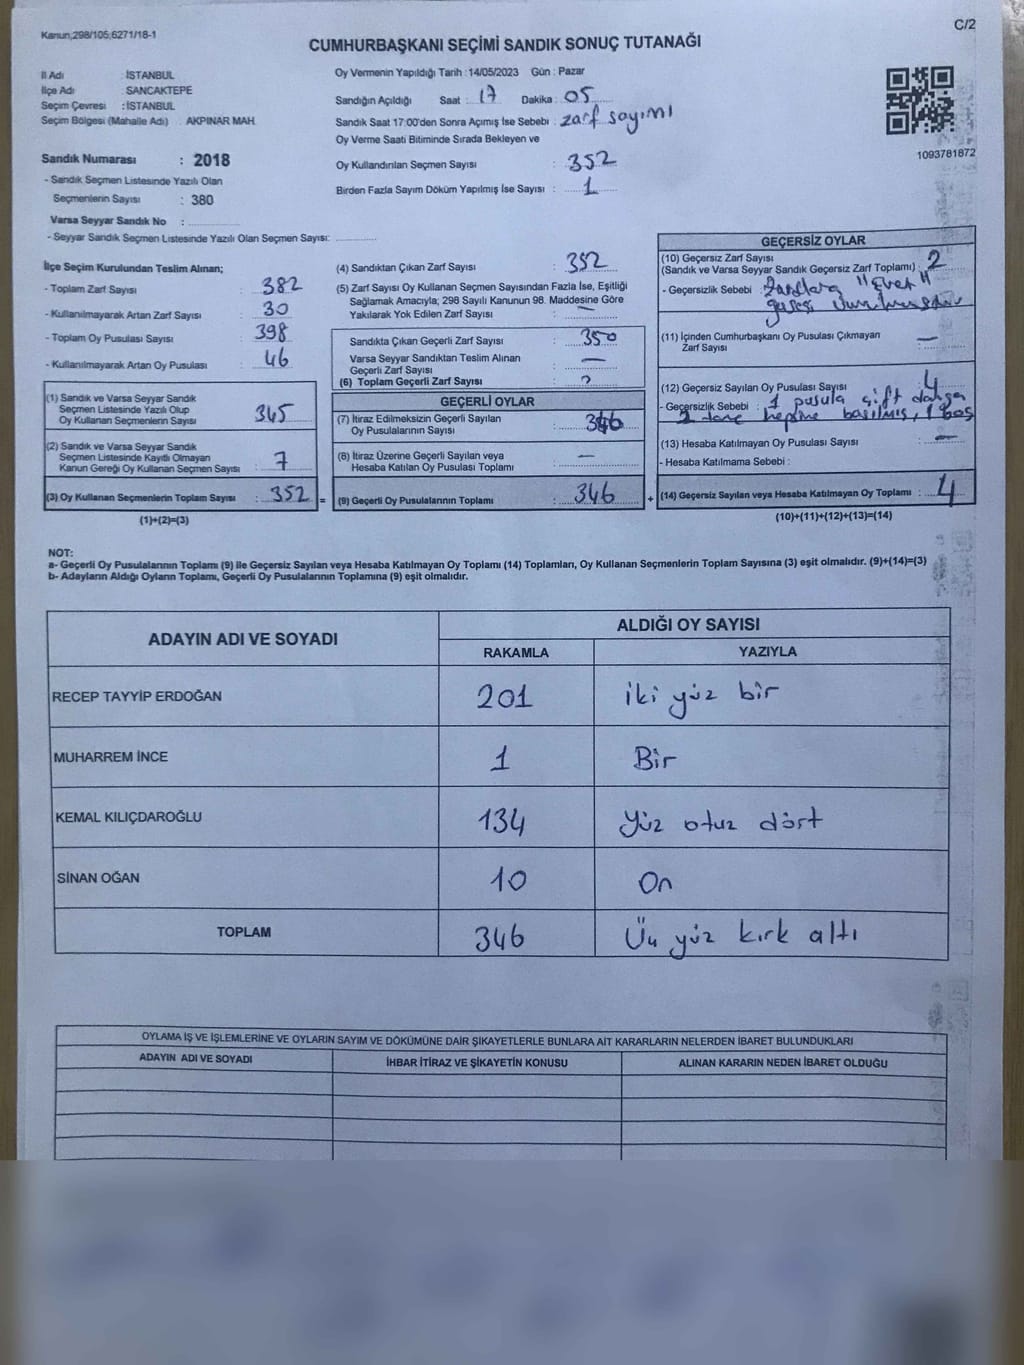 Kanun;298/105;6271/18-1
C/2
CUMHURBAŞKANI SEÇİMİ SANDIK SONUÇ TUTANAĞI
İl Adı : İSTANBUL
İlçe Adı : SANCAKTEPE
Seçim Çevresi : İSTANBUL
Seçim Bölgesi (Mahalle Adı) : AKPINAR MAH.
Sandık Numarası : 2018
- Sandık Seçmen Listesinde Yazılı Olan
Seçmenlerin Sayısı : 380
Varsa Seyyar Sandık No :
- Seyyar Sandık Seçmen Listesinde Yazılı Olan Seçmen Sayısı:
Oy Vermenin Yapıldığı Tarih : 14/05/2023 Gün : Pazar
Sandığın Açıldığı Saat : 17 Dakika : 05
Sandık Saat 17:00'den Sonra Açımış İse Sebebi : zarf sayımı
Oy Verme Saati Bitiminde Sırada Bekleyen ve
Oy Kullandırılan Seçmen Sayısı : 352
Birden Fazla Sayım Döküm Yapılmış İse Sayısı : 1
1093781872
İlçe Seçim Kurulundan Teslim Alınan;
- Toplam Zarf Sayısı : 382
- Kullanılmayarak Artan Zarf Sayısı : 30
- Toplam Oy Pusulası Sayısı : 398
- Kullanılmayarak Artan Oy Pusulası : 46
(1) Sandık ve Varsa Seyyar Sandık
Seçmen Listesinde Yazılı Olup
Oy Kullanan Seçmenlerin Sayısı : 345
(2) Sandık ve Varsa Seyyar Sandık
Seçmen Listesinde Kayıtlı Olmayan
Kanun Gereği Oy Kullanan Seçmen Sayısı : 7
(3) Oy Kullanan Seçmenlerin Toplam Sayısı : 352 =
(1)+(2)=(3)
(4) Sandıktan Çıkan Zarf Sayısı : 352
(5) Zarf Sayısı Oy Kullanan Seçmen Sayısından Fazla İse, Eşitliği
Sağlamak Amacıyla; 298 Sayılı Kanunun 98. Maddesine Göre
Yakılarak Yok Edilen Zarf Sayısı : —
Sandıkta Çıkan Geçerli Zarf Sayısı : 350
Varsa Seyyar Sandıktan Teslim Alınan
Geçerli Zarf Sayısı : —
(6) Toplam Geçerli Zarf Sayısı :
GEÇERLİ OYLAR
(7) İtiraz Edilmeksizin Geçerli Sayılan
Oy Pusulalarının Sayısı : 346
(8) İtiraz Üzerine Geçerli Sayılan veya
Hesaba Katılan Oy Pusulası Toplamı : —
(9) Geçerli Oy Pusulalarının Toplamı : 346 +
GEÇERSİZ OYLAR
(10) Geçersiz Zarf Sayısı
(Sandık ve Varsa Seyyar Sandık Geçersiz Zarf Toplamı) : 2
- Geçersizlik Sebebi : Zarflara "Evet"
(11) İçinden Cumhurbaşkanı Oy Pusulası Çıkmayan
Zarf Sayısı : —
(12) Geçersiz Sayılan Oy Pusulası Sayısı : 4
- Geçersizlik Sebebi : 1 pusula çift damga
2 tane hepine basılmış, 1 boş
(13) Hesaba Katılmayan Oy Pusulası Sayısı : —
- Hesaba Katılmama Sebebi :
(14) Geçersiz Sayılan veya Hesaba Katılmayan Oy Toplamı : 4
(10)+(11)+(12)+(13)=(14)
NOT:
a- Geçerli Oy Pusulalarının Toplamı (9) ile Geçersiz Sayılan veya Hesaba Katılmayan Oy Toplamı (14) Toplamları, Oy Kullanan Seçmenlerin Toplam Sayısına (3) eşit olmalıdır. (9)+(14)=(3)
b- Adayların Aldığı Oyların Toplamı, Geçerli Oy Pusulalarının Toplamına (9) eşit olmalıdır.
ADAYIN ADI VE SOYADI
ALDIĞI OY SAYISI
RAKAMLA YAZIYLA
RECEP TAYYİP ERDOĞAN 201 iki yüz bir
MUHARREM İNCE 1 Bir
KEMAL KILIÇDAROĞLU 134 Yüz otuz dört
SİNAN OĞAN 10 On
TOPLAM 346 Üç yüz kırk altı
OYLAMA İŞ VE İŞLEMLERİNE VE OYLARIN SAYIM VE DÖKÜMÜNE DAİR ŞİKAYETLERLE BUNLARA AİT KARARLARIN NELERDEN İBARET BULUNDUKLARI
ADAYIN ADI VE SOYADI İHBAR İTİRAZ VE ŞİKAYETİN KONUSU ALINAN KARARIN NEDEN İBARET OLDUĞU